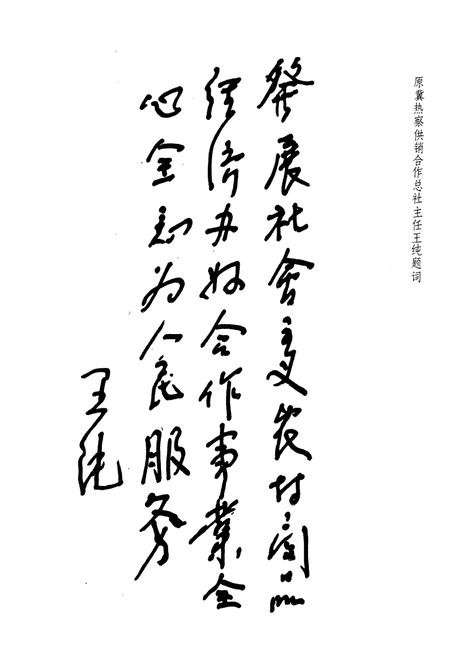 原冀热察供销合作总社主任王纯题词
發展社会主义农村商品
经济办好合作事业全
心全意为人民服务
王纯